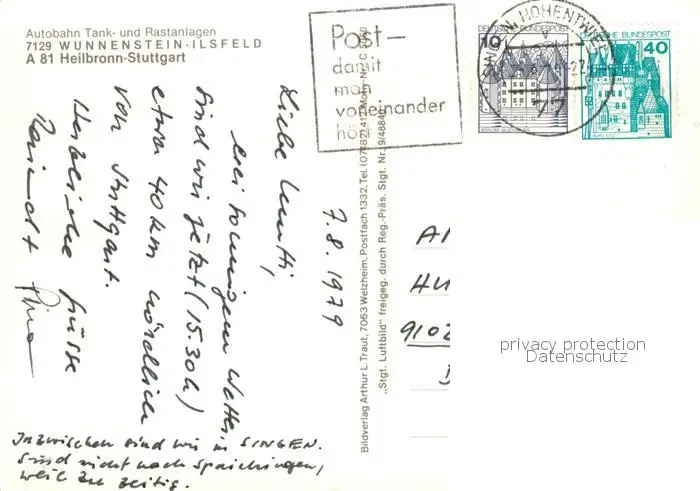 Autobahn Tank- und Rastanlagen
7129 WUNNENSTEIN-ILSFELD
A 81 Heilbronn-Stuttgart
Post—
damit
man
voneinander
hört
SINGEN, HOHENTWIEL
77
10
DEUTSCHE BUNDESPOST
DEUTSCHE BUNDESPOST
40
7.8.1979
Liebe Mutti,
bei sonnigem Wetter
sind wir jetzt (15.30h)
etwa 40 km nördlich
von Stuttgart.
Herzliche Grüsse
Inzwischen sind wir in SINGEN.
Sind nicht nach Spaichingen,
weil zu zeitig.
Bildverlag Arthur L. Traut, 7063 Welzheim, Postfach 1332, Tel. (07182)
„Stgt. Luftbild" freigeg. durch Reg.-Präs. Stgt. Nr. 9/4884
HU
9102
privacy protection
Datenschutz